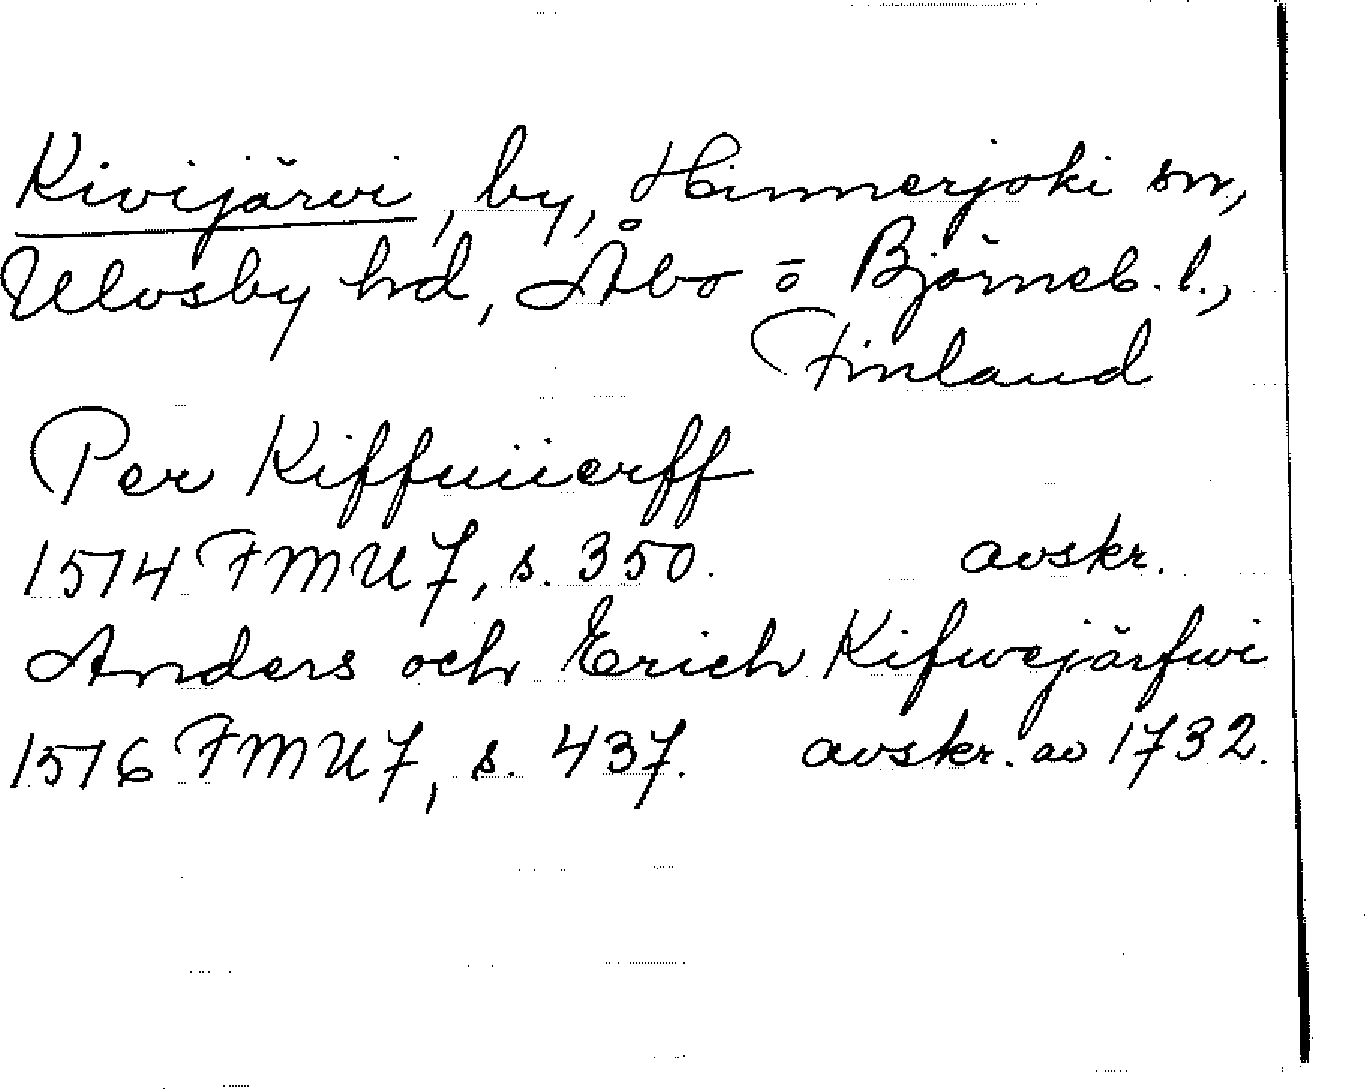 Kivijärvi, by, Hinnerjoki sn,
Ulvsby hd, Åbo o Björneb. l.,
Finland
Per Kiffuiierff
1514 FMU 7, s. 350. avskr.
Anders och Erich Kifwejärfwi
1516 FMU 7, s. 437. avskr. av 1732.